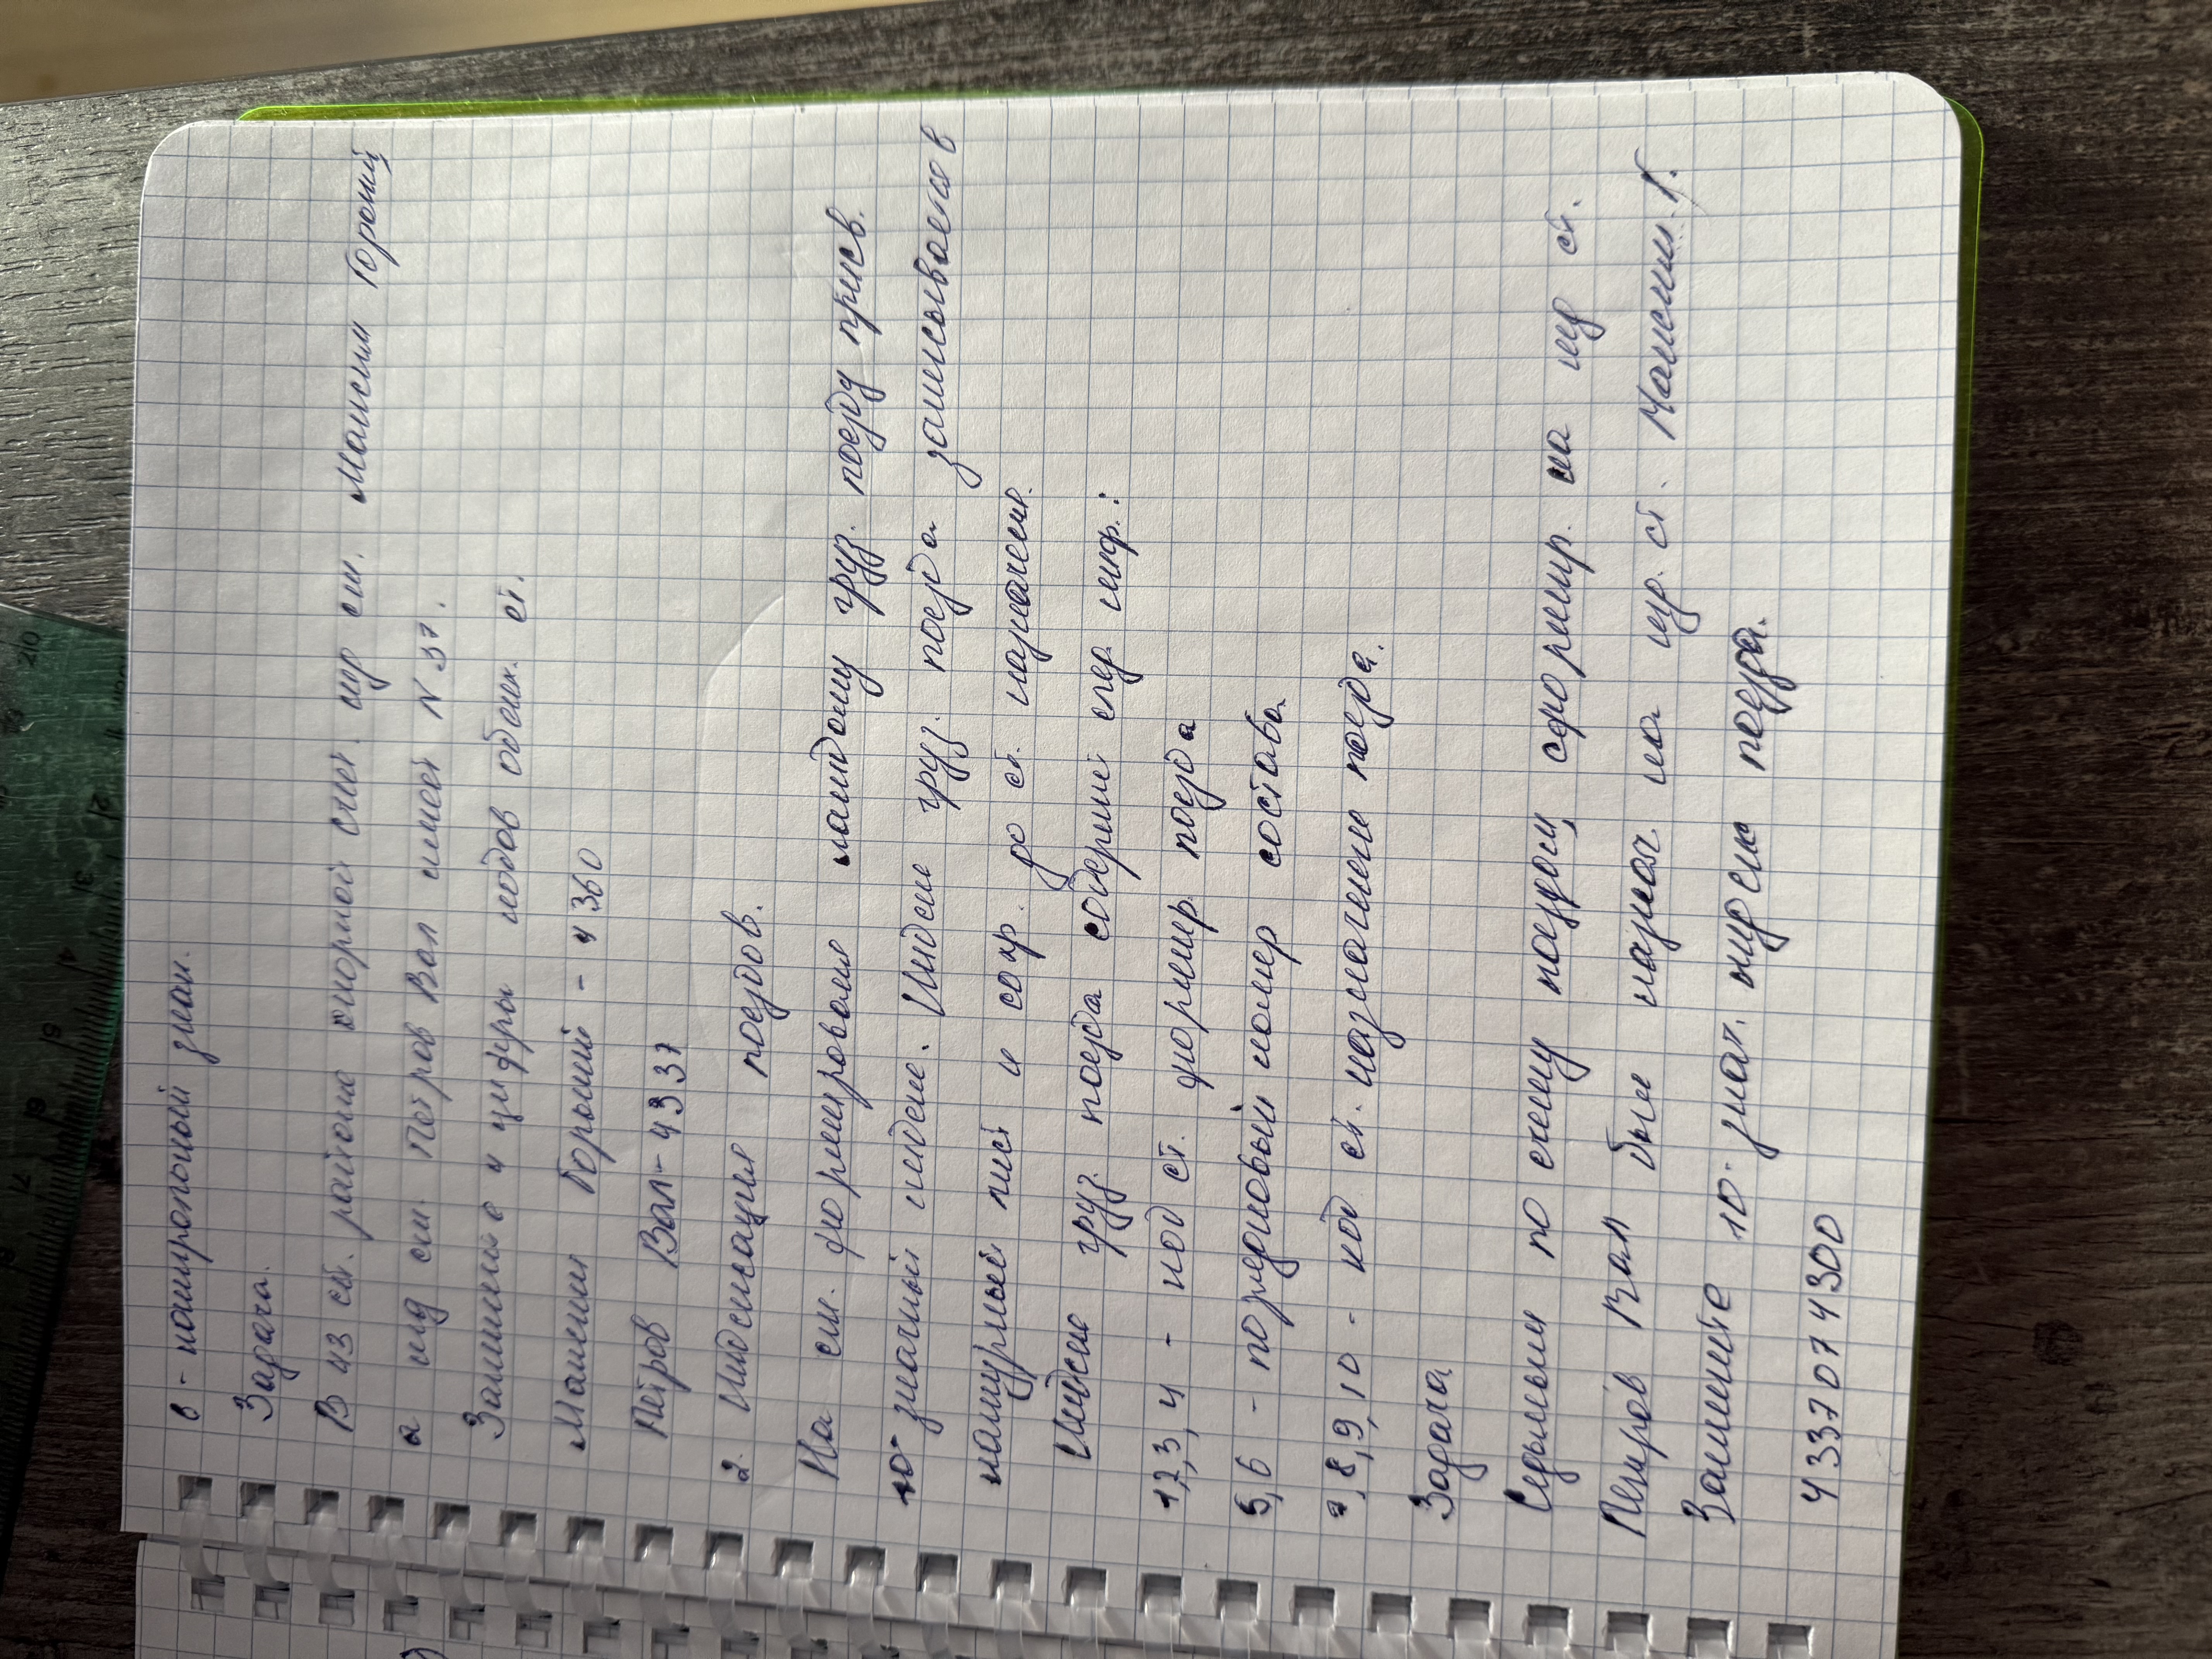 6 - контрольный знак.
Задача.
В 43 ст. районе опорной счит. жд ст. Максим Горький
а жд ст. Петров Вал имеет N 37.
Запишите 4 цифры кодов обеих ст.
Максим Горький - 4360
Петров Вал - 4337
2. Индексация поездов.
На ст. формирования каждому груз. поезду присв.
10 значный индекс. Индекс груз. поезда записывается в
натурный лист и сохр. до ст. назначен.
Индекс груз. поезда содержит след. инф.:
1,2,3,4 - код ст. формир. поезда
5,6 - порядковый номер состава
7,8,9,10 - код ст. назначения поезда.
Задача
Седьмым по счету поездом, сформир. на жд ст.
Петров Вал был назнач. на жд. ст. Максим Г.
Запишите 10-знач. индекс поезда.
4337074300